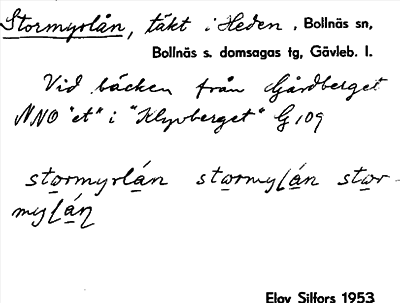 Stormyrlån, täkt i Heden. Bollnäs sn,
Bollnäs s. domsagas tg, Gävleb. l.
Vid bäcken från Gårdberget
NNO "et" i "Klyvberget" G 109
stormyrlán stormyl̨án stor-
myl̨án
Elov Silfors 1953